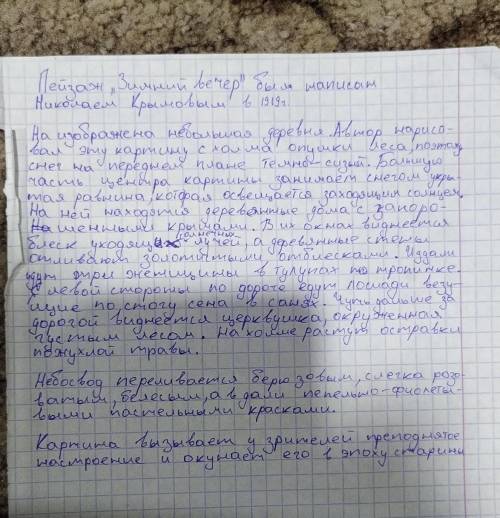 Пейзаж „Зимний вечер" был написан
Николаем Крымовым в 1919г.
На изображена небольшая деревня. Автор нарисо-
вал эту картину с холма опушки леса, поэтому
снег на переднем плане темно-сизый. Большую
часть центра картины занимает снегом укры-
тая равнина, которая освещается заходящим солнцем.
На ней находятся деревянные дома с запоро-
шенными крышами. В их окнах виднеется
блеск уходящих солнечных лучей, а деревянные стены
отливают золотистыми отблесками. Издали
идут три женщины в тулупах по тропинке.
С левой стороны по дороге едут лошади везу-
щие по стогу сена в санях. Чуть дальше за
дорогой виднеется церквушка, окруженная
густым лесом. На холме растут островки
пожухлой травы.
Небосвод переливается берюзовым, слегка розо-
ватым, белесым, а в дали пепельно-фиолеты-
выми пастельными красками.
Картина вызывает у зрителей преподнятое
настроение и окунает его в эпоху старины